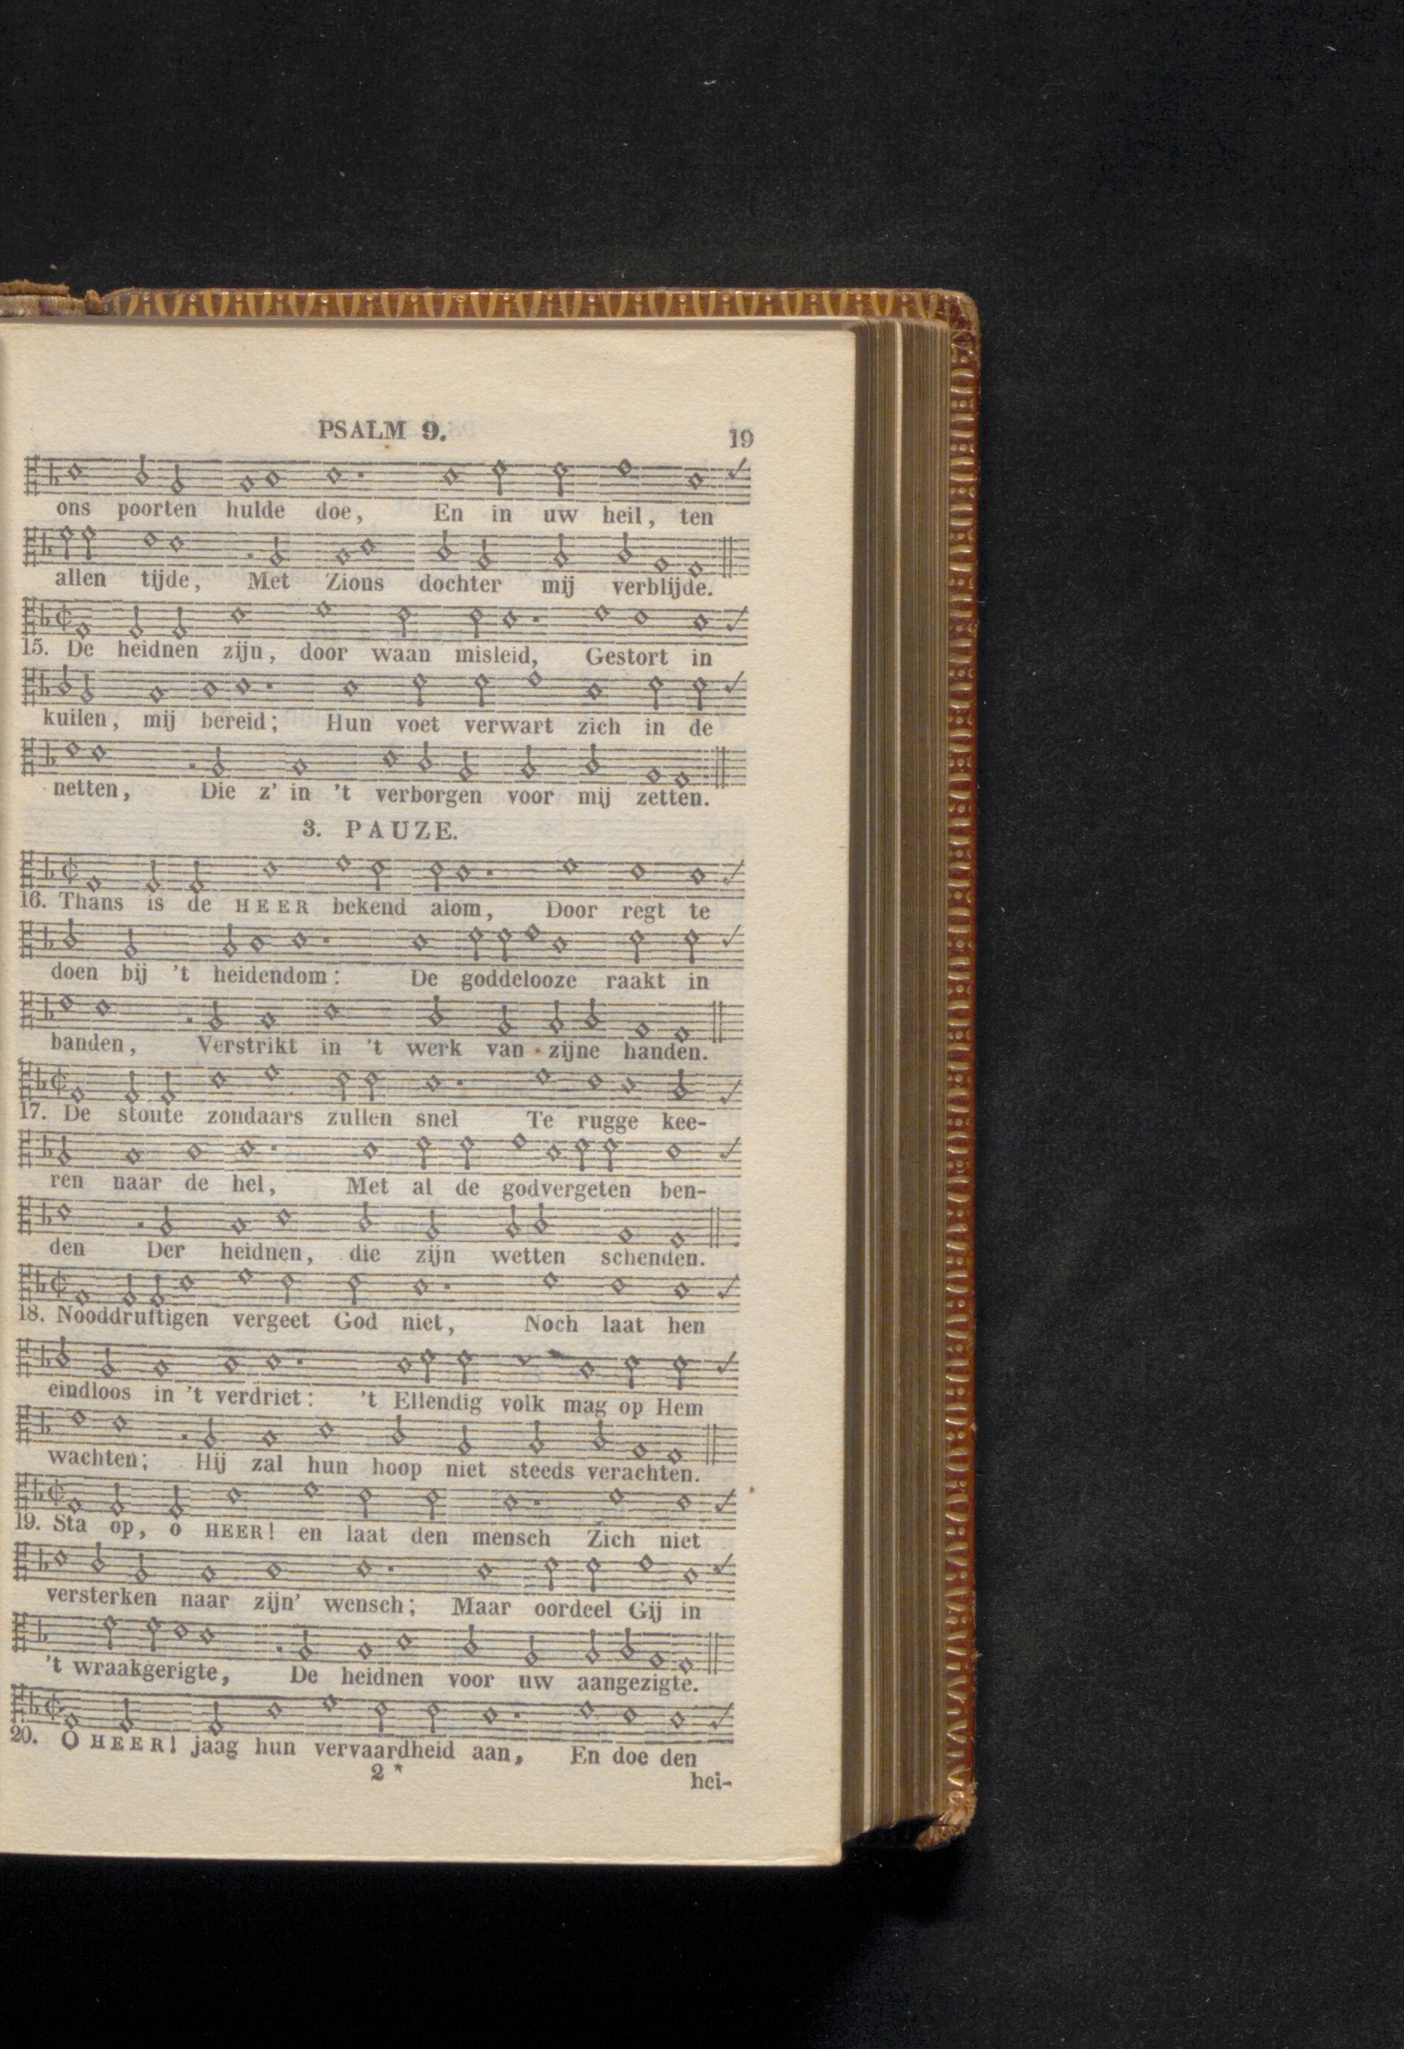 PSALM 9.
19
ons poorten hulde doe, En in uw heil, ten
allen tijde, Met Zions dochter mij verblijde.
15. De heidnen zijn, door waan misleid, Gestort in
kuilen, mij bereid; Hun voet verwart zich in de
netten, Die z' in 't verborgen voor mij zetten.
3. PAUZE.
16. Thans is de HEER bekend alom, Door regt te
doen bij 't heidendom: De goddelooze raakt in
banden, Verstrikt in 't werk van zijne handen.
17. De stoute zondaars zullen snel Te rugge kee-
ren naar de hel, Met al de godvergeten ben-
den Der heidnen, die zijn wetten schenden.
18. Nooddruftigen vergeet God niet, Noch laat hen
eindloos in 't verdriet: 't Ellendig volk mag op Hem
wachten; Hij zal hun hoop niet steeds verachten.
19. Sta op, o HEER! en laat den mensch Zich niet
versterken naar zijn' wensch; Maar oordeel Gij in
't wraakgerigte, De heidnen voor uw aangezigte.
20. O HEER! jaag hun vervaardheid aan, En doe den
2 *
hei-